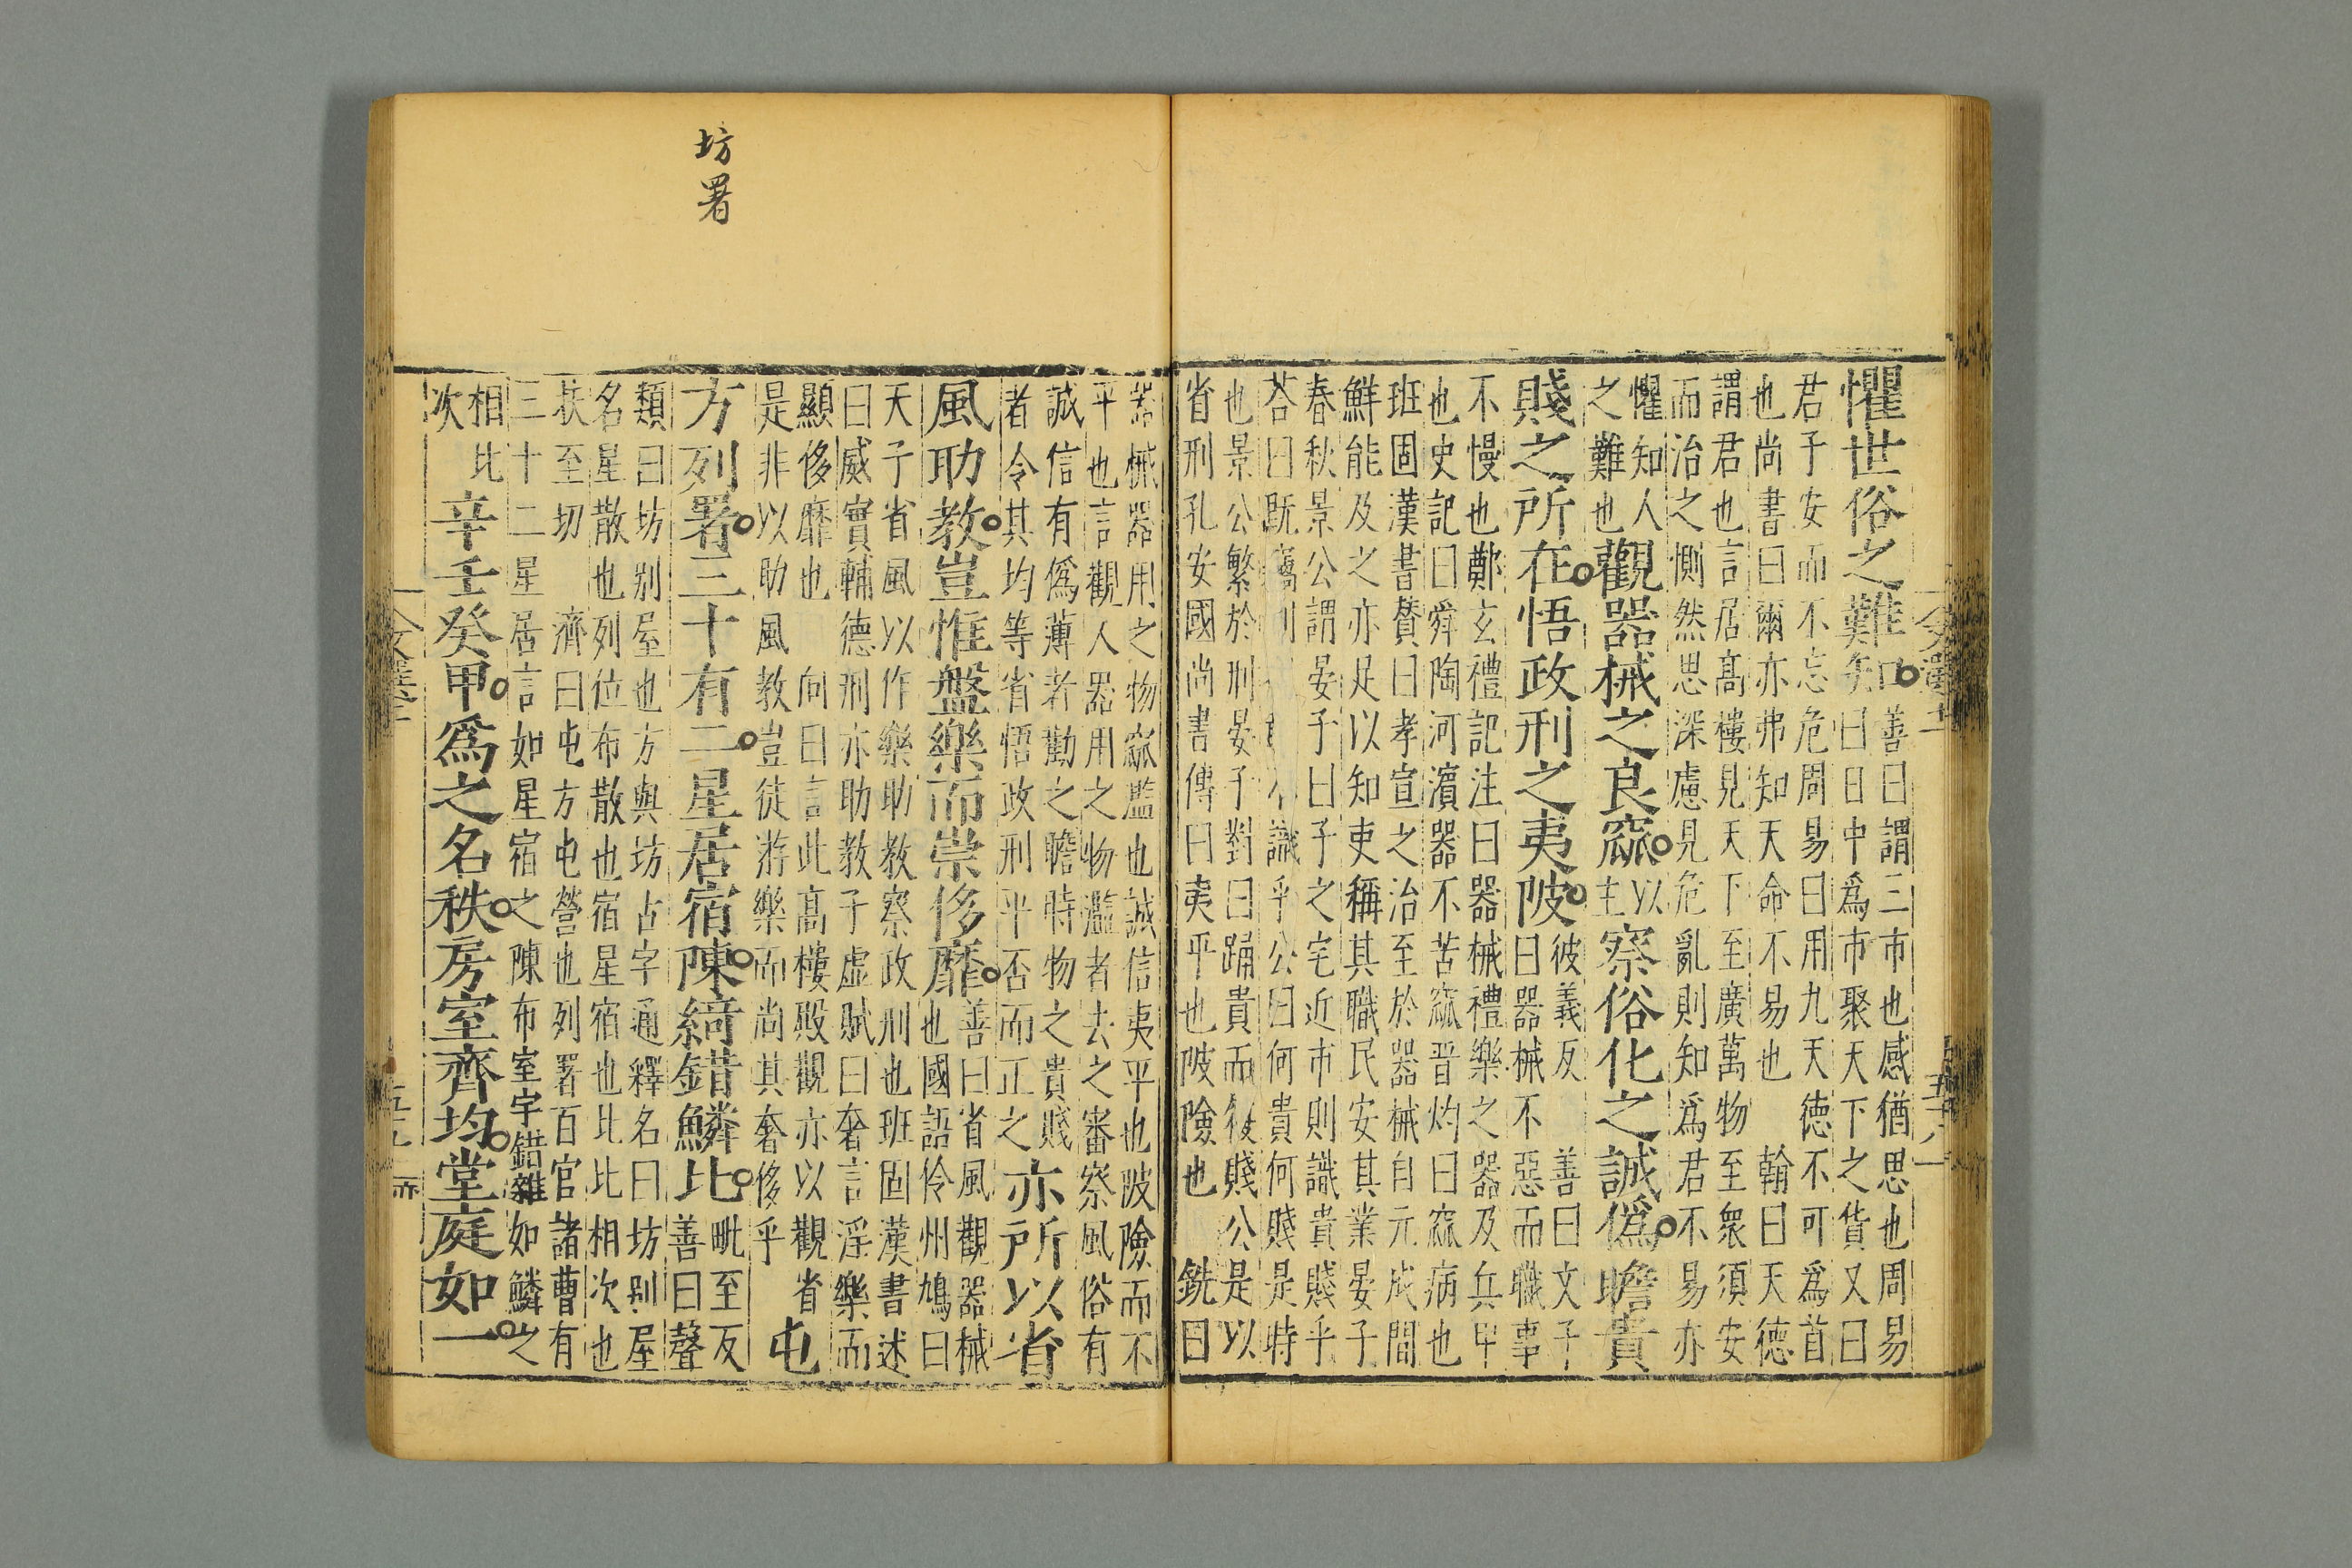 懼世俗之難知
善曰謂三市也感猶思也周易
曰日中爲市聚天下之貨又曰
君子安而不忘危周易曰用九天德不可爲首
也尚書曰爾亦弗知天命不易也　翰曰天德
謂君也言居髙樓見天下至廣萬物至衆須安
而治之惻然思深慮見危亂則知爲君不易亦
懼知人
之難也
觀器械之良窳
以
主
察俗化之誠僞瞻貴
賤之所在悟政刑之夷陂
彼義反　善曰文子
曰器械不惡而職事
不慢也鄭玄禮記注曰器械禮樂之器及兵甲
也史記曰舜陶河濵器不苦窳晉灼曰窳病也
班固漢書賛曰孝宣之治至於器械自元成間
鮮能及之亦足以知吏稱其職民安其業晏子
春秋景公謂晏子曰子之宅近市則識貴賤乎
荅曰既竊利識乎公曰何貴何賤是時
也景公繁於刑晏子對曰踊貴而屨賤公是以
省刑孔安國尚書傳曰夷平也陂險也　銑曰
器械器用之物窳濫也誠信夷平也陂險而不
平也言觀人器用之物濫者去之審察風俗有
誠信有僞薄者勸之瞻時物之貴賤
者令其均等省悟政刑平否而正之
亦所以省
風助教豈惟盤樂而崇侈靡
善曰省風觀器械
也國語伶州鳩曰
天子省風以作樂助教察政刑也班固漢書述
曰威實輔德刑亦助教子虛賦曰奢言淫樂而
顯侈靡也　向曰言此髙樓殿觀亦以觀省
是非以助風教豈徒游樂而尚其奢侈乎
屯
坊署
方列署三十有二星居宿陳綺錯鱗比
毗至反
善曰聲
類曰坊别屋也方與坊古字通釋名曰坊别屋
名星散也列位布散也宿星宿也比比相次也
扶至切　濟曰屯方屯營也列署百官諸曹有
三十二星居言如星宿之陳布室宇錯雜如鱗之
相比
次
辛壬癸甲爲之名秩房室齊均堂庭如一